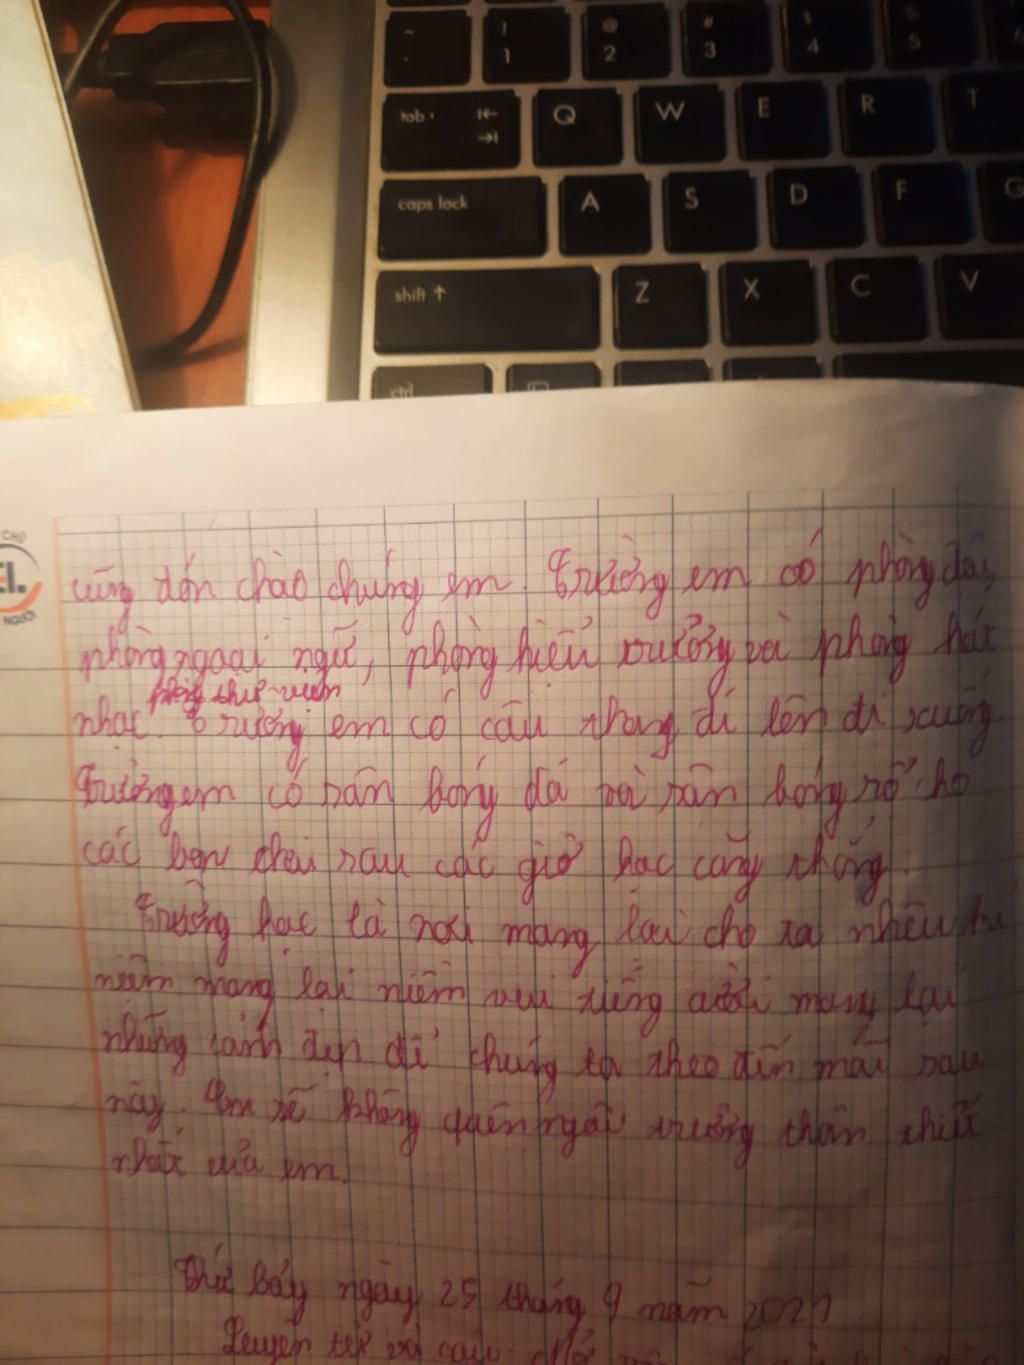 ~ `
! 1
@ 2
# 3
$ 4
% 5
tab
Q W E R T
caps lock
A S D F G
shift ↑
Z X C V
ctrl
CHO
EL
NGƯỜI
cũng đón chào chúng em. Trường em có phòng
phòng ngoại ngữ, phòng hiệu trưởng và phòng hát
phòng thư viện
nhạc. Trường em có cầu thang đi lên đi xuống.
Trường em có sân bóng đá và sân bóng rổ cho
các bạn chơi sau các giờ học căng thẳng.
Trường học là nơi mang lại cho ta nhiều
niệm mang lại niềm vui tiếng cười mang lại
những cảnh đẹp để chúng ta theo đến mãi sau
này. Em sẽ không quên ngôi trường thân thiết
nhất của em.
Thứ bảy ngày 25 tháng 9 năm 2021
Luyện từ và câu: